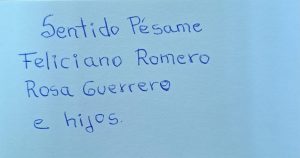 Sentido Pésame
Feliciano Romero
Rosa Guerrero
e hijos.